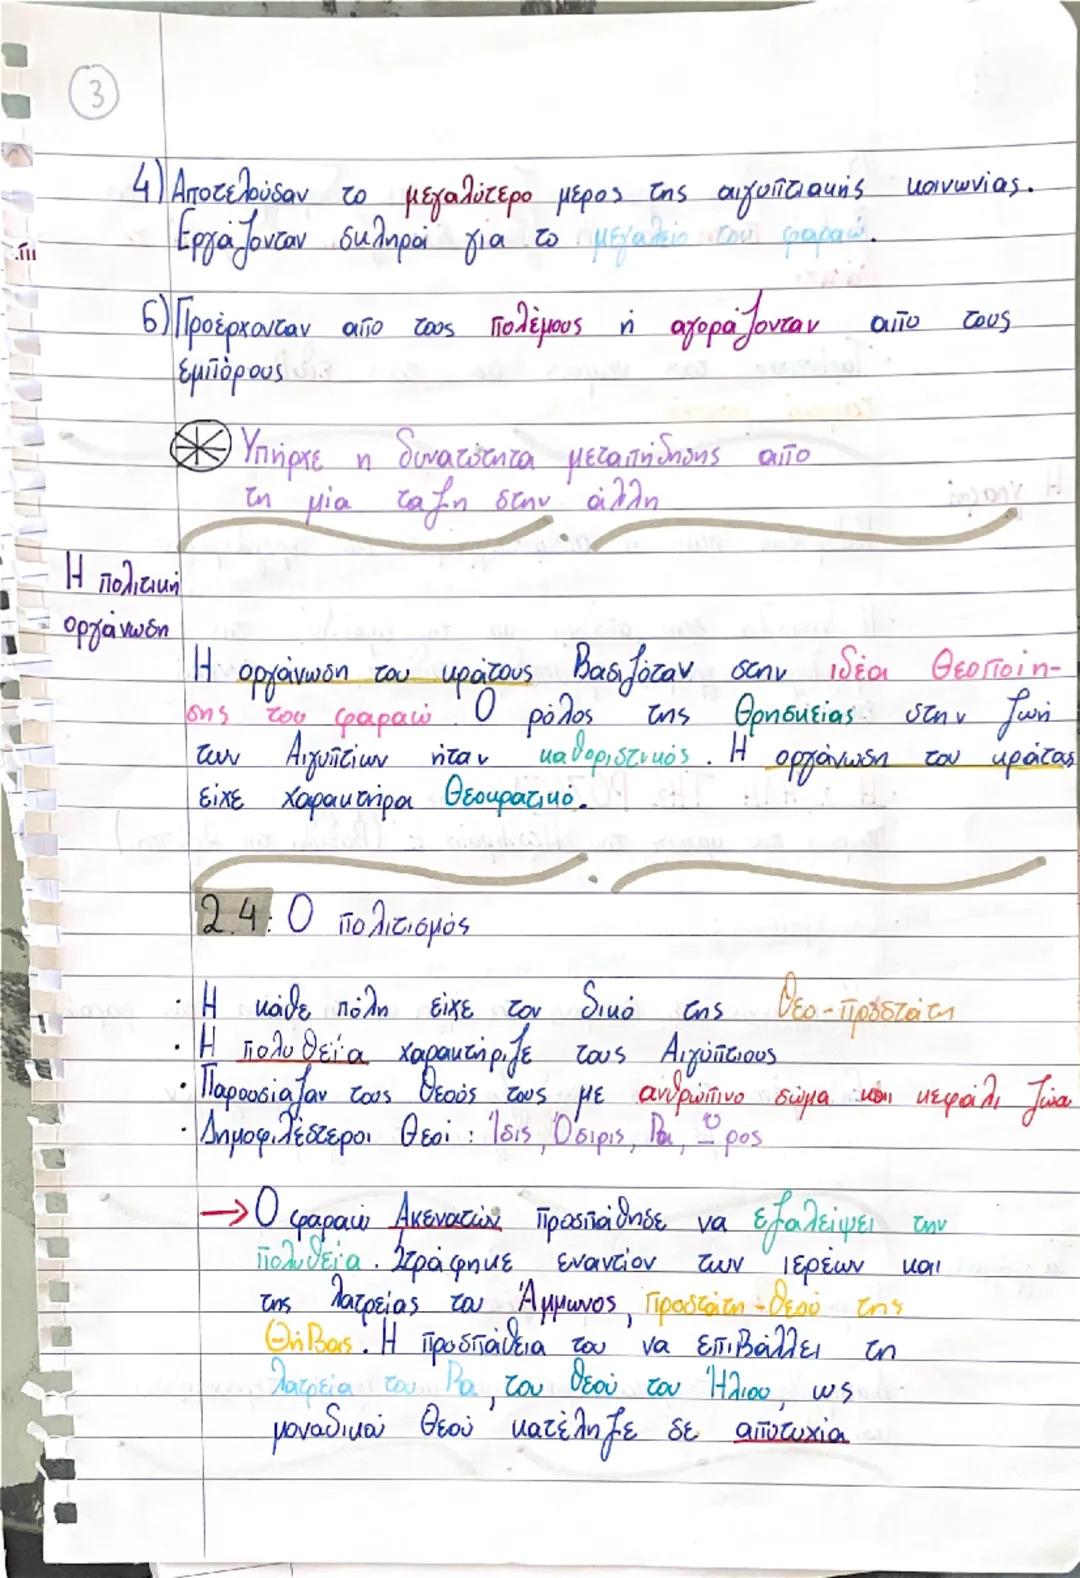 3
4) Αποτελούσαν το μεγαλύτερο μέρος της αιγυπτιακής κοινωνίας.
Εργάζονταν σκληρά για το μεγαλείο του φαραώ.
5) Προέρχονταν από τους πολέμους ή αγοράζονταν από τους
εμπόρους
Υπήρχε η δυνατότητα μεταπήδησης από
τη μία ταξη στην άλλη
Η πολιτική
οργάνωση
Η οργάνωση του κράτους βασιζόταν στην ιδέα θεοποίη-
σης του φαραώ. Ο ρόλος της θρησκείας στην ζωή
των Αιγυπτίων ήταν καθοριστικός. Η οργάνωση του κράτους
είχε χαρακτήρα θεοκρατικό.
2.4: Ο πολιτισμός
· Η κάθε πόλη είχε τον δικό της θεο-προστάτη
· Η πολυθεΐα χαρακτήριζε τους Αιγύπτιους
· Παρουσίαζαν τους θεούς τους με ανθρώπινο σώμα και κεφάλι ζώα
· Δημοφιλέστεροι θεοί: Ίσις, Όσιρις, Ρα, Ώρος
→ Ο φαραώ Ακενατών προσπάθησε να εξαλείψει την
πολυθεΐα. Στράφηκε εναντίον των ιερέων και
της λατρείας του Άμμωνος, προστάτη-θεού της
Θήβας. Η προσπάθεια του να επιβάλλει τη
λατρεία του Ρα, του θεού του Ήλιου, ως
μοναδικού θεού κατέληξε σε αποτυχία